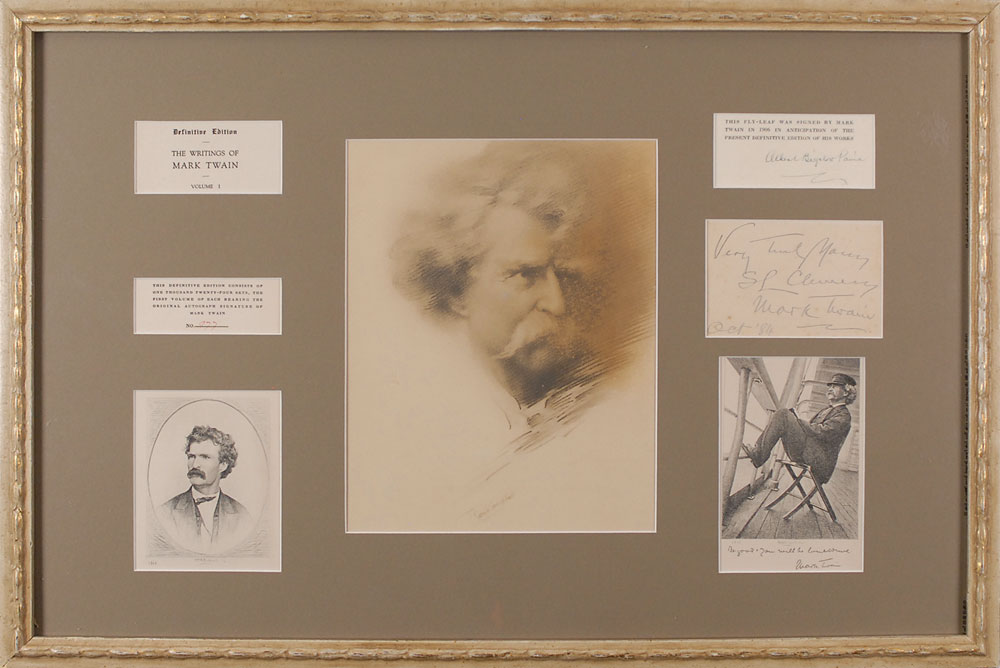 Definitive Edition
THE WRITINGS OF
MARK TWAIN
VOLUME I
THIS DEFINITIVE EDITION CONSISTS OF
ONE THOUSAND TWENTY-FOUR SETS, THE
FIRST VOLUME OF EACH BEARING THE
ORIGINAL AUTOGRAPH SIGNATURE OF
MARK TWAIN
NO.
THIS FLY-LEAF WAS SIGNED BY MARK
TWAIN IN 1906 IN ANTICIPATION OF THE
PRESENT DEFINITIVE EDITION OF HIS WORKS
Albert Bigelow Paine
Very Truly Yours
SL Clemens
Mark Twain
Oct '86
Be good & you will be lonesome
Mark Twain